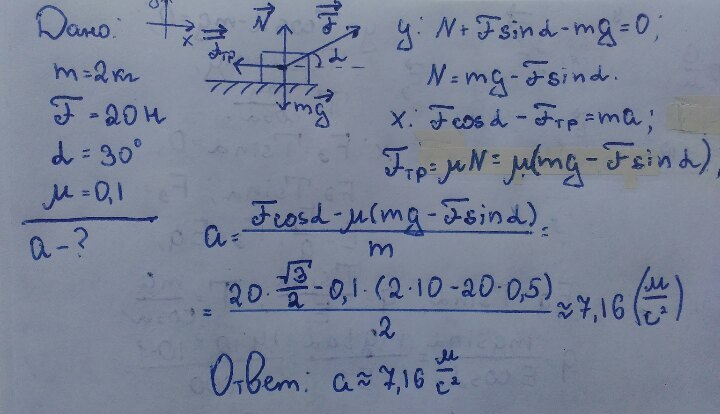 Дано:
m = 2 кг
F = 20 Н
α = 30°
μ = 0,1
a - ?
x
N
F
Fтр
α
mg
y: N + F sin α - mg = 0;
N = mg - F sin α.
x: F cos α - Fтр = ma;
Fтр = μN = μ(mg - F sin α),
a = (F cos α - μ(mg - F sin α)) / m =
= (20 · √3/2 - 0,1 · (2 · 10 - 20 · 0,5)) / 2 ≈ 7,16 (м/с²)
Ответ: a ≈ 7,16 м/с²